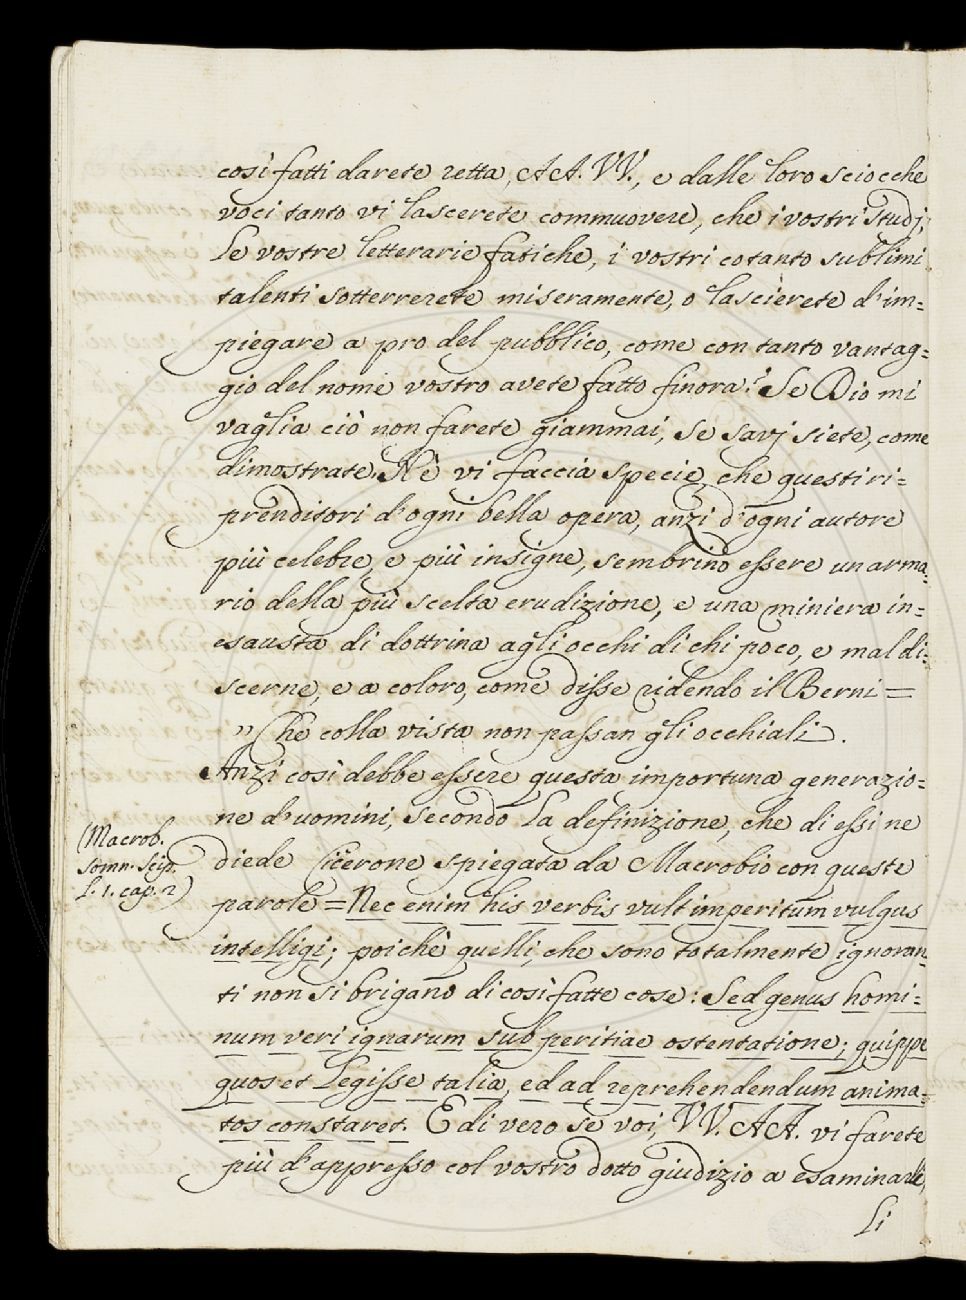 così fatti darete retta, AA. VV., e dalle loro sciocche
voci tanto vi lascerete commuovere, che i vostri studj,
le vostre letterarie fatiche, i vostri cotanto sublimi
talenti sotterrerete miseramente, o lascierete d'im=
piegare a pro del pubblico, come con tanto vantag=
gio del nome vostro avete fatto finora? Se Dio mi
vaglia ciò non farete giammai, se savj siete, come
dimostrate. Nè vi faccia specie, che questi ri=
prenditori d'ogni bella opera, anzi d'ogni autore
più celebre, e più insigne, sembrino essere un arma=
rio della più scelta erudizione, e una miniera in=
esausta di dottrina agli occhi di chi poco, e mal di=
scerne, e a coloro, come disse ridendo il Berni =
" Che colla vista non passan gli occhiali.
Anzi così debbe essere questa importuna generazio=
ne d'uomini, secondo la definizione, che di essi ne
(Macrob.
somn. Scip.
l. 1. cap. 2)
diede Cicerone spiegata da Macrobio con queste
parole = Nec enim his verbis vult imperitum vulgus
intelligi; poichè quelli, che sono totalmente ignoran=
ti non si brigano di così fatte cose: Sed genus homi=
num veri ignarum sub peritiae ostentatione; quippe
quos et legisse talia, ed ad reprehendendum anima=
tos constaret. E di vero se voi, VV. AA. vi farete
più d'appresso col vostro dotto giudizio a esaminarli,
Li